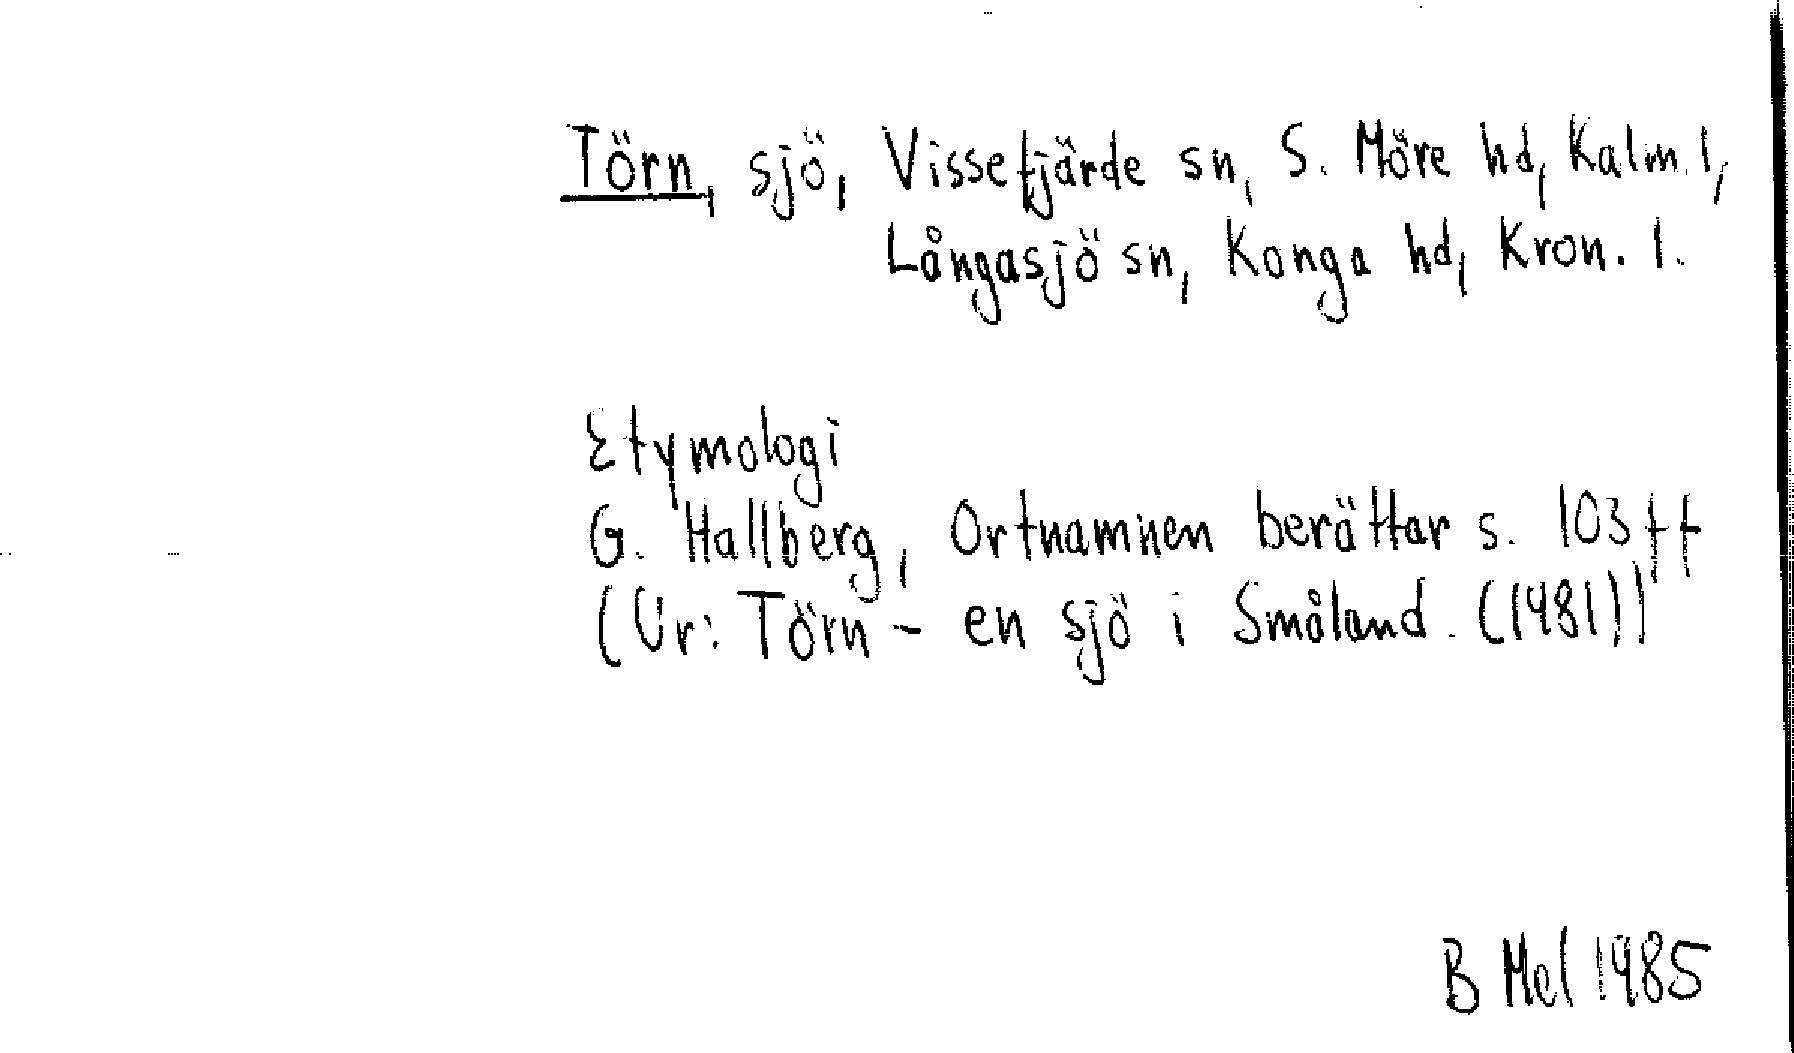 Törn, sjö, Vissefjärde sn, S. Möre hd, Kalm. l,
Långasjö sn, Konga hd, Kron. l.
Etymologi
G. Hallberg, Ortnamnen berättar s. 103 ff
(Ur: Törn – en sjö i Småland. (1981))
B Mel 1985